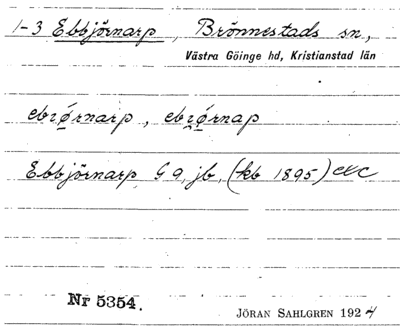 1-3 Ebbjörnarp, Brönnestads sn,
Västra Göinge hd, Kristianstad län
Ebbjörnarp G 9, jb, (kb 1895) etc
Nr 5354.
JÖRAN SAHLGREN 1924